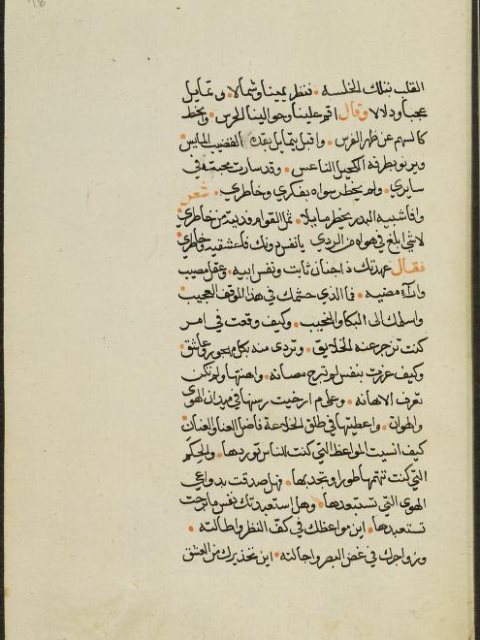 القلب بتلك الخلسه · فنظر يمينا وشمالا · وتمايل
عجبا ودلالا وقال اقم علينا وحوالينا الحرس · وانحط
كالسهم عن ظهر الفرس · واقبل يتمايل بقده القضيب المايس
ويرنو بطرفه الكحيل الناعس · وقد سارت محبته في
سايري · ولم يخطر سواه بفكري وخاطري · شعر
وافا شبيه البدر يخطر مايلا · ثمل القوام فديته من خاطري
لا شي ابلغ في هواه من الردي يا نفس دونك فاعشقيه وخاطري
فقال عهدتك ذا جنان ثابت ونفس ابيه · وعقل مصيب
واراء مضيه · فما الذي حثمك في هذا الموقف العجيب
واسلمك الى البكا والنحيب · وكيف وقعت في امر
كنت تزجر عنه الخلايق · وتردي منه بكل مجور وعاشق ·
وكيف عززت بنفس لم تبرح مصانه · واهنتها ولم تكن
تعرف الاهانه · وعلى م ارخيت رسنها في ميدان الهوى
والهوان · واعطيتها في طلق الخلاعة فاضل العنا والعنان ·
كيف انسيت المواعظ التي كنت للناس توردها · والحكم
التي كنت تتهمها طورا وتجددها · فهل صدقت بدواعي
الهوى التي تستبعدها · وهل استعبدتك نفس ما برحت
تستعبدها · اين مواعظك في كف النظر واطالته ·
وزواجرك في غض البصر واجالته · اين تحذيرك من العشق